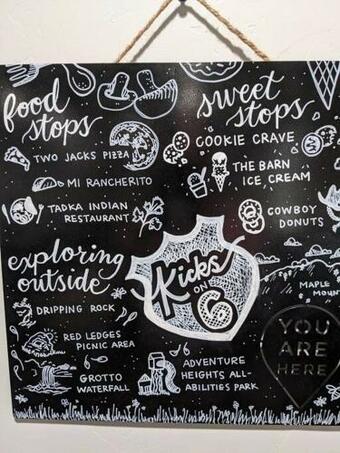 food
stops
TWO JACKS PIZZA
MI RANCHERITO
TADKA INDIAN
RESTAURANT
sweet
stops
COOKIE CRAVE
THE BARN
ICE CREAM
COWBOY
DONUTS
exploring
outside
DRIPPING ROCK
RED LEDGES
PICNIC AREA
GROTTO
WATERFALL
ADVENTURE
HEIGHTS ALL-
ABILITIES PARK
Kicks
ON
6
MAPLE
YOU
ARE
HERE